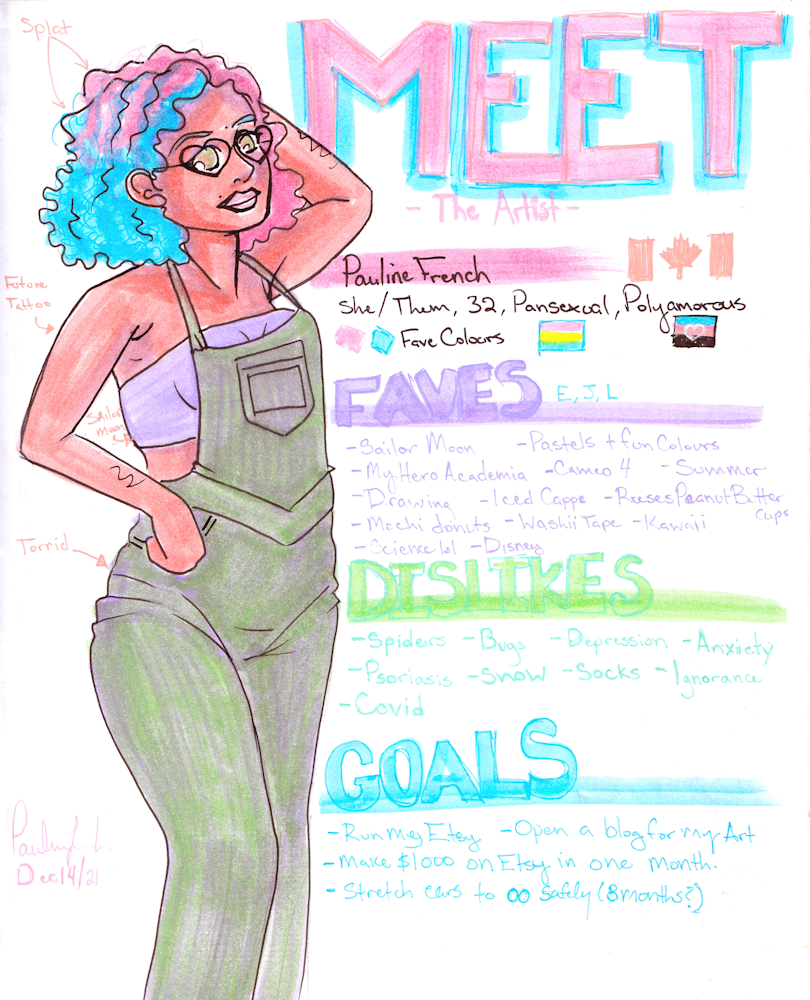 Splat
MEET
- The Artist -
Pauline French
She/Them, 32, Pansexual, Polyamorous
Fave Colours
Future
Tattoo
FAVES E, J, L
Sailor
moon
- Sailor Moon - Pastels + fun Colours
- My Hero Academia - Cameo 4 - Summer
- Drawing - Iced Cappe - Reeses Peanut Butter
Cups
- Mochi donuts - Washii Tape - Kawaii
- Science lol - Disney
Torrid
DISLIKES
- Spiders - Bugs - Depression - Anxiety
- Psoriasis - Snow - Socks - Ignorance
- Covid
GOALS
- Run my Etsy - Open a blog for my Art
- Make $1000 on Etsy in one month.
- Stretch ears to 00 safely (8 months?)
Dec 14/21